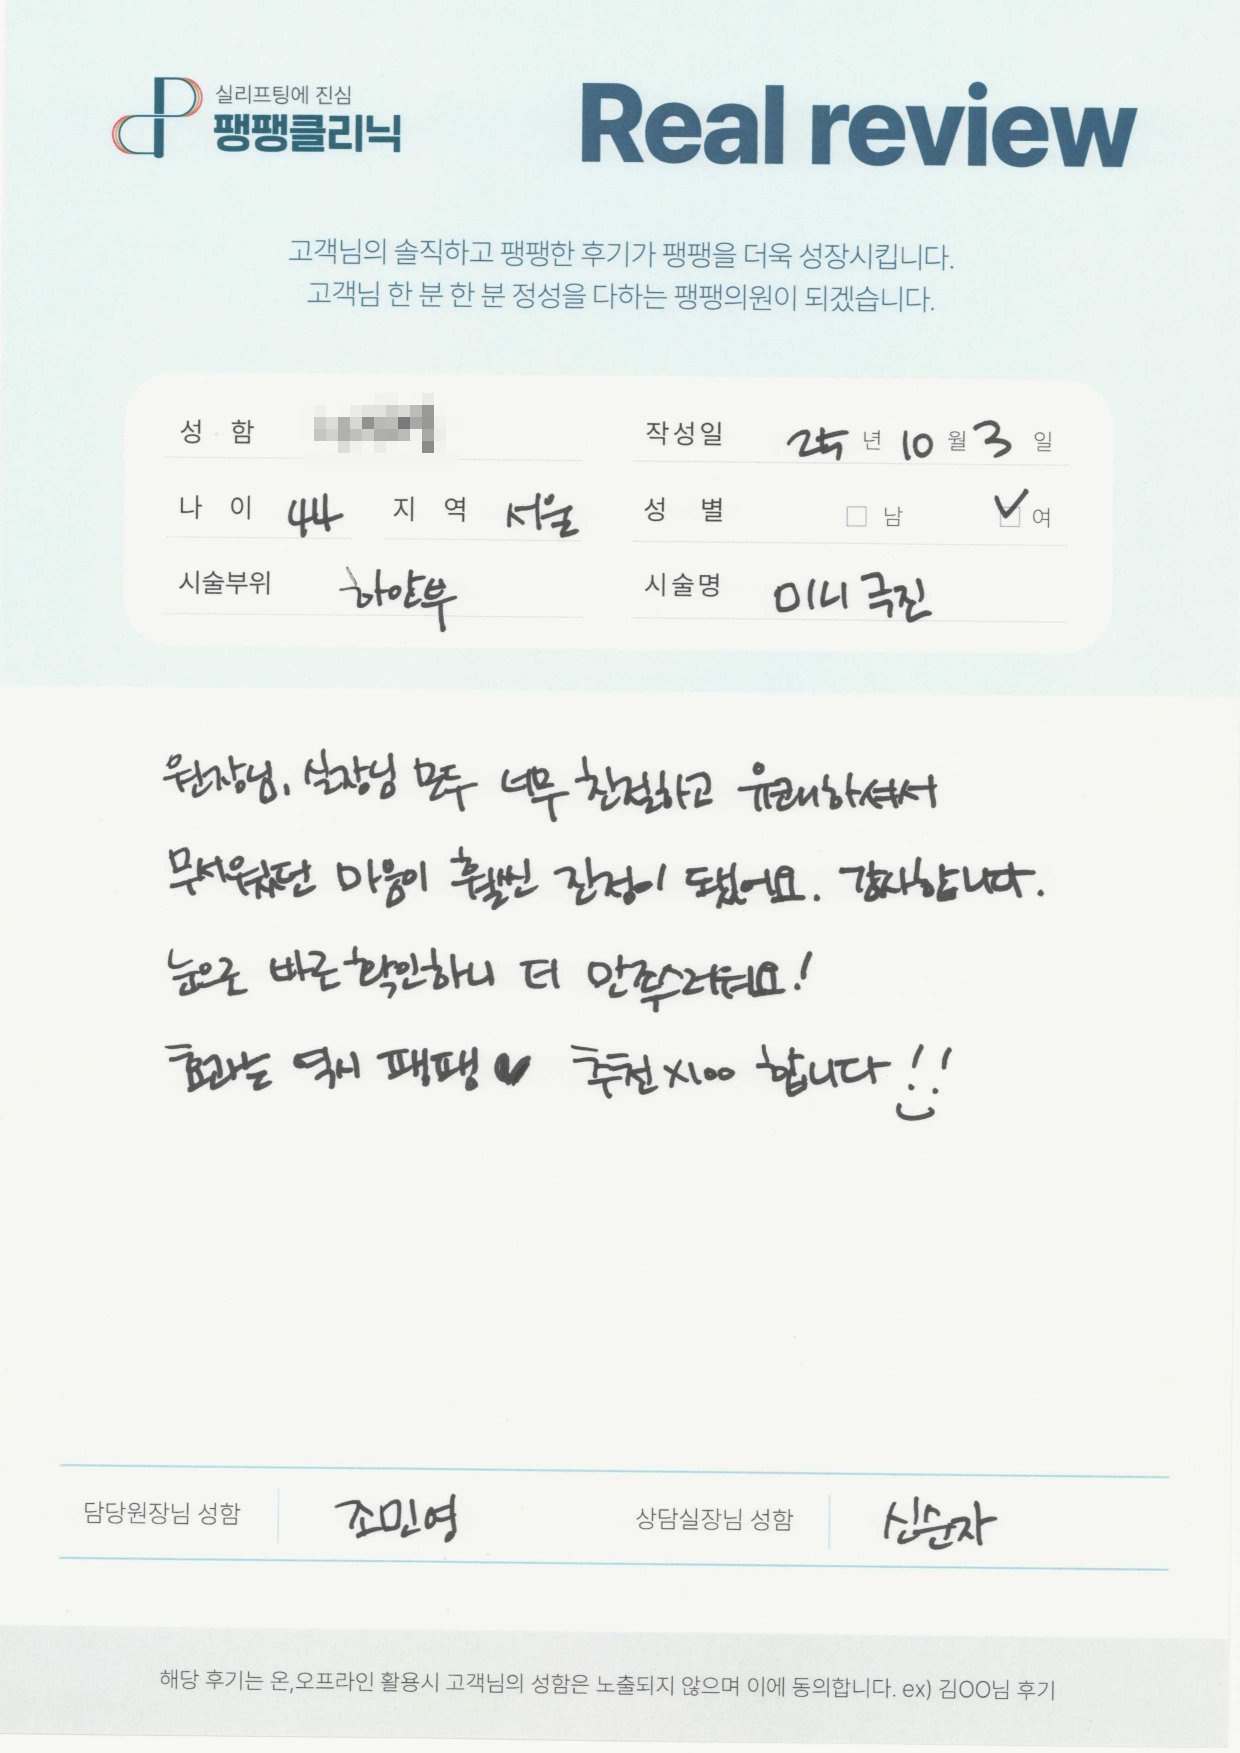 실리프팅에 진심
팽팽클리닉
Real review
고객님의 솔직하고 팽팽한 후기가 팽팽을 더욱 성장시킵니다.
고객님 한 분 한 분 정성을 다하는 팽팽의원이 되겠습니다.
성 함 작성일 25 년 10 월 3 일
나 이 44 지 역 서울 성 별 남 여
시술부위 하안부 시술명 미니 극진
원장님, 실장님 모두 너무 친절하고 유쾌하셔서
무서웠던 마음이 훨씬 진정이 됐어요. 감사합니다.
눈으로 바로 확인하니 더 만족스러워요!
효과는 역시 팽팽♥ 추천 x100 합니다!!
담당원장님 성함 조민영 상담실장님 성함 신순자
해당 후기는 온,오프라인 활용시 고객님의 성함은 노출되지 않으며 이에 동의합니다. ex) 김OO님 후기